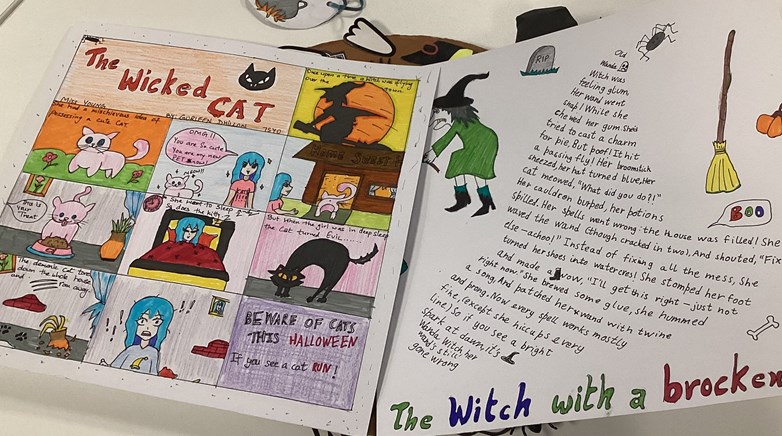 The
Wicked
CAT
MISS YOUNG
BY GURLEEN DHILLON
7S40
Once upon a time a witch was flying
over the
town
She had a mischievous idea of
possessing a cute cat.
OMG!!
You are so cute
You are my new
PET
MEOW!!
This is
Your Treat
She went to sleep
So does the kitty
But when the girl was in deep sleep
the Cat turned EVIL......
The demonic cat tore
down the whole house
and ran away
BEWARE OF CATS
THIS HALLOWEEN
If you see a cat RUN!
RIP
Old
Wanda
Witch was
feeling glum
Her wand went
snap! While she
chewed her gum. She
tried to cast a charm
for pie, But poof! It hit
a passing fly! Her broomstick
sneezed, her hat turned blue, Her
cat meowed, "What did you do?!"
Her cauldron burped, her potions
spilled, Her spells went wrong the house was filled! She
waved the wand (though cracked in two), And shouted, "Fix
else-achoo!" Instead of fixing all the mess, She
turned her shoes into watercress! She stomped her foot
and made a vow, "I'll get this right – just not
right now." She brewed some glue, she hummed
a song, And patched her wand with twine
and prong. Now every spell works mostly
fine, (except she hiccups every
line) So if you see a bright
spark at dawn, it's
Wanda Witch her
wand's still
gone wrong
BOO
The Witch with a brocken